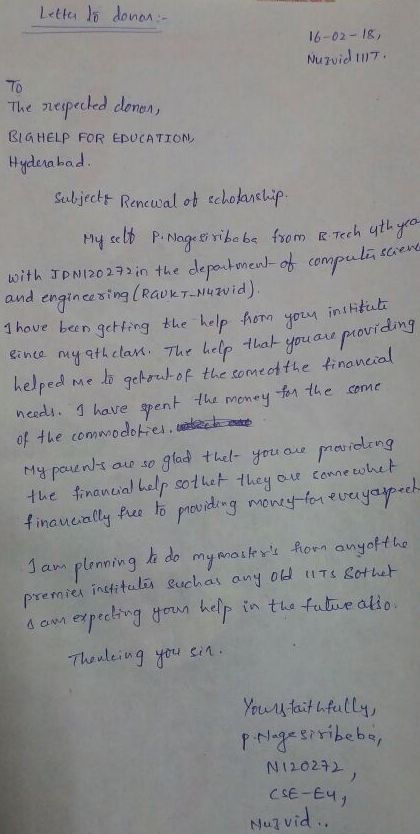 Letter to donor:-
16-02-18,
Nuzvid IIIT.
To
The respected donor,
BIGHELP FOR EDUCATION,
Hyderabad.
Subject: Renewal of scholarship.
My self P.Nagesiribaba from B.Tech 4th year
with IDN120272 in the department of computer science
and engineering (RGUKT-Nuzvid).
I have been getting the help from your institute
since my 9th class. The help that you are providing
helped me to getout of the some of the financial
needs. I have spent the money for the some
of the commodoties.
My parents are so glad that you are providing
the financial help so that they are somewhat
financially free to providing money for every aspect
I am planning to do my master's from any of the
premier institutes such as any old IITs so that
I am expecting your help in the future also.
Thanking you sir.
Yours faithfully,
P.Nagesiribaba,
N120272,
CSE-E4,
Nuzvid..